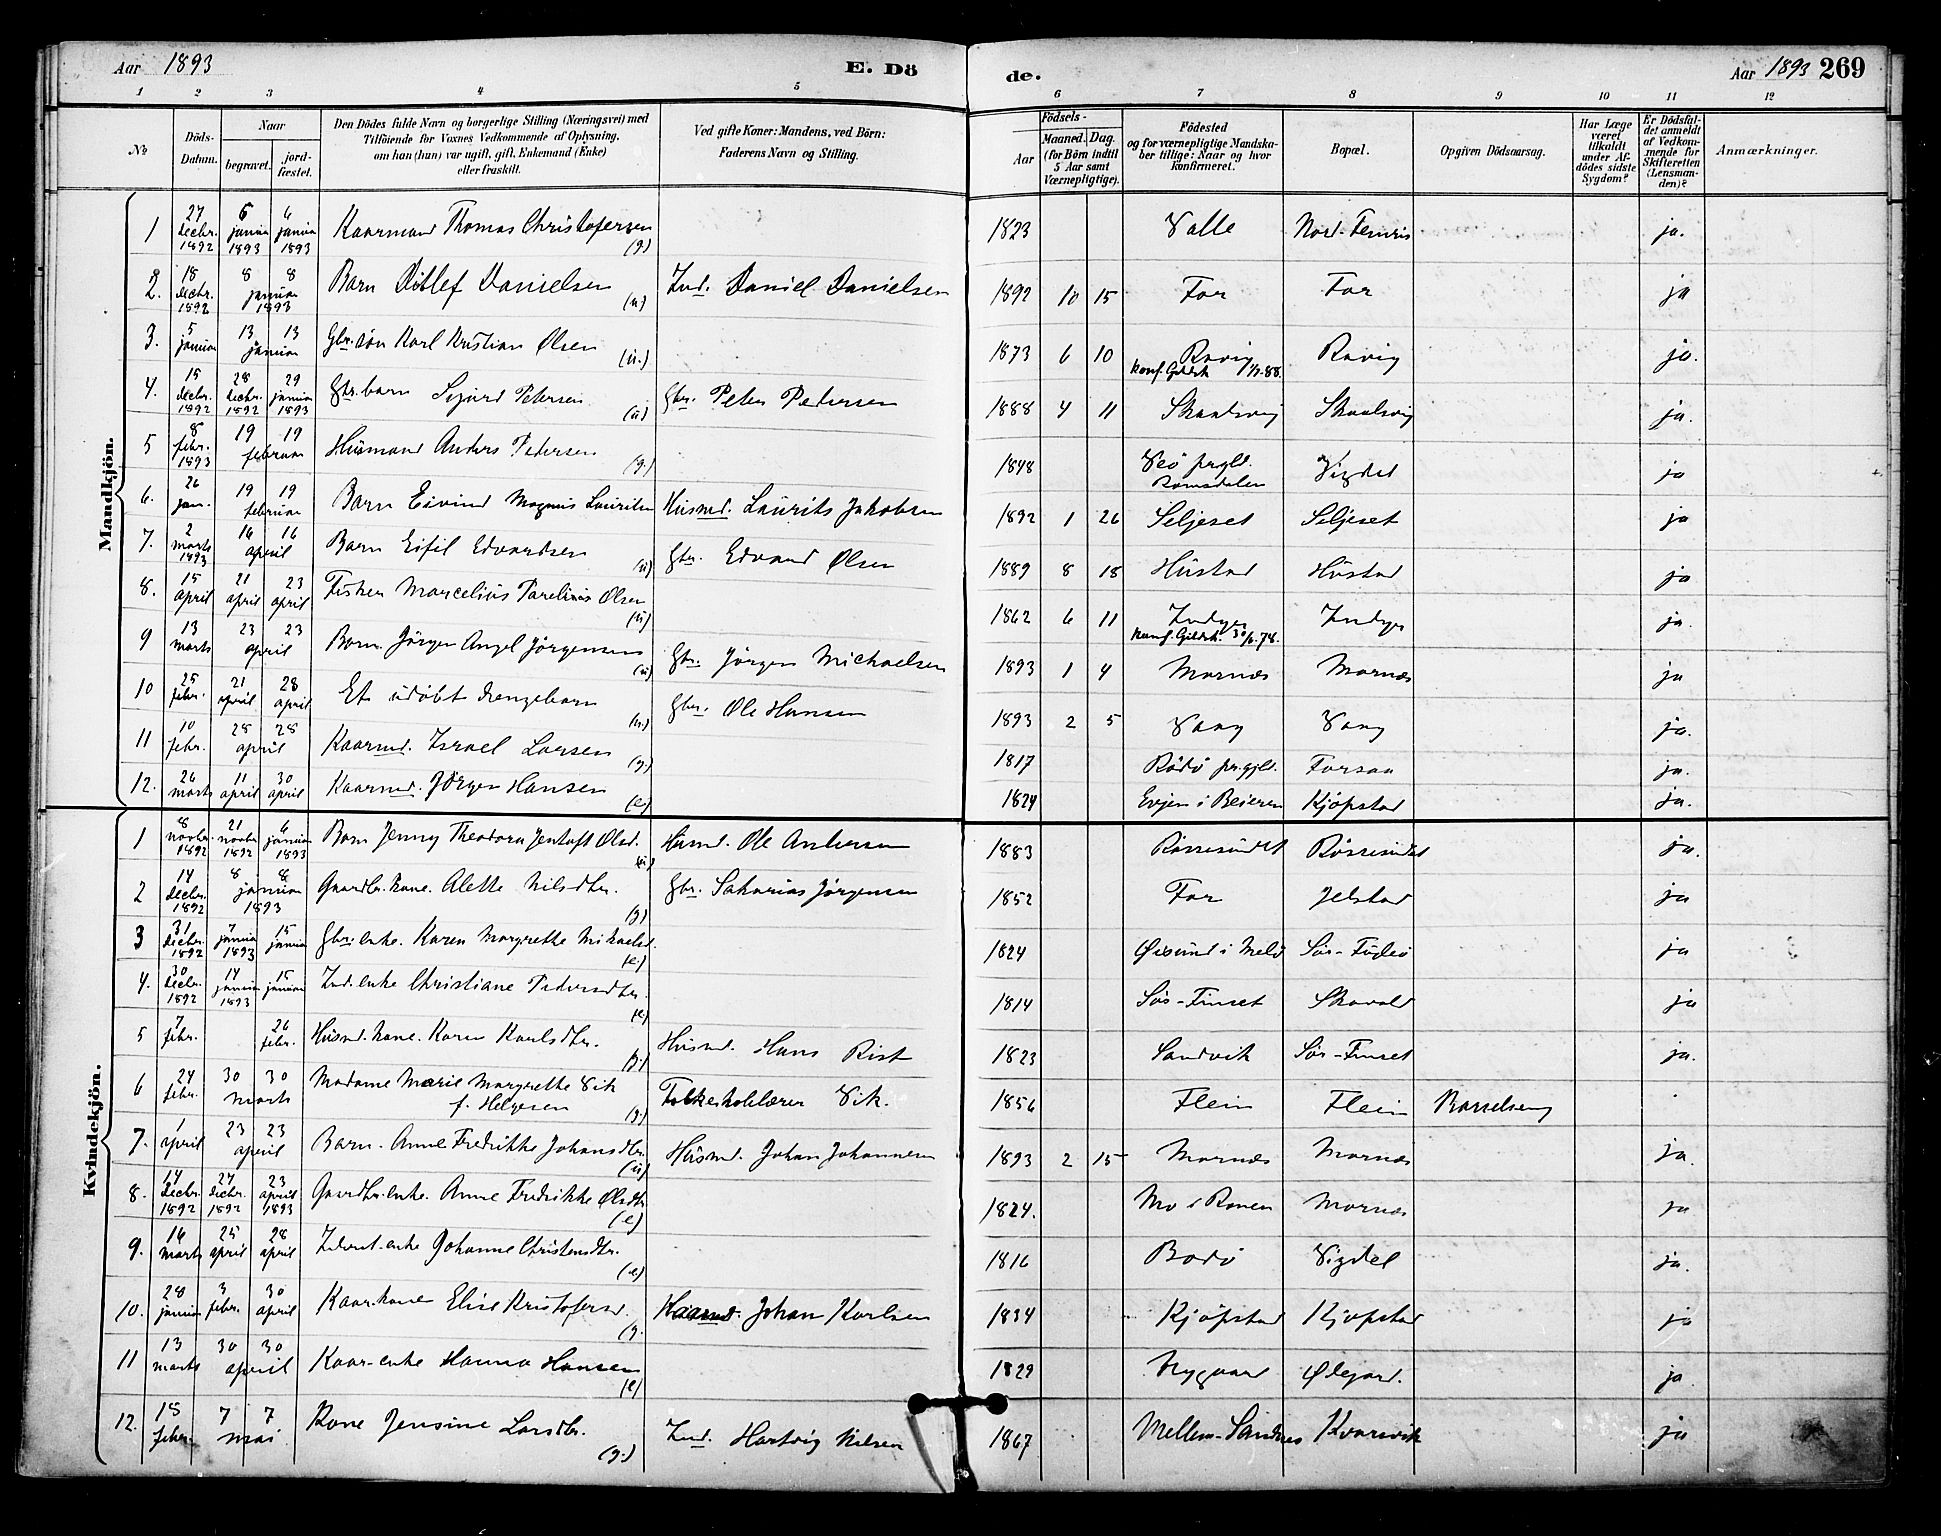 Aar 1893 E. Döde. Aar 1893 269
1 2 3 4 5 6 7 8 9 10 11 12
№
Döds-Datum.
Naar
begravet. jordfæstet.
Den Dödes fulde Navn og borgerlige Stilling (Næringsvei) med
Tilföiende for Voxnes Vedkommende af Oplysning,
om han (hun) var ugift, gift, Enkemand (Enke)
eller fraskilt.
Ved gifte Koner: Mandens, ved Börn:
Faderens Navn og Stilling.
Födsels-
Aar Maaned. Dag.
(for Börn indtil
5 Aar samt
Værnepligtige).
Födested
og for værnepligtige Mandska-
ber tillige: Naar og hvor
konfirmeret.
Bopæl.
Opgiven Dödsaarsag.
Har Læge
været
tilkaldt
under Af-
dödes sidste
Sygdom?
Er Dödsfal-
det anmeldt
af Vedkom-
mende for
Skifteretten
(Lensman-
den)?
Anmærkninger.
Mandkjön.
1 27 decbr. 1892 6 januar 1893 6 januar 1893 Kaarmand Thomas Christofersen (g.) 1823 Valle Nord-Femris ja.
2. 18 decbr. 1892 8 8 januar 1893 Barn Ditlef Danielsen (u) Ind. Daniel Danielsen 1892 10 15 For For ja
3. 5 januar 13 13 januar Gbr. søn Karl Kristian Olsen (u.) 1873 6 10 Røvig konf. Gildsk. 1/7.88. Røvig ja.
4. 15 decbr. 1892 28 decbr. 1892 29 januar 1893 Gbr. barn Sigurd Petersen (u) Gbr. Peter Pedersen 1888 4 11 Skaalsvig Skaalsvig ja.
5 8 febr. 1893 19 19 februar Husmand Anders Pedersen (g.) 1848 Veö prgld. Romsdalen Vigdel ja
6. 26 jan. 19 19 februar Barn Eivind Magnus Lauritsen Husmd. Laurits Jakobsen 1892 1 26 Seljeset Seljeset ja
7. 2 marts 1893 16 16 april Barn Eifil Edvardsen (u) Gbr. Edvard Olsen 1889 8 18 Hustad Hustad ja
8. 15 april 21 april 23 april Fisker Marcelius Parelius Olsen (u) 1862 6 11 Indyr konf. Gildsk. 30/6.78. Indyr ja.
9 13 marts 23 23 april Barn Jörgen Angel Jörgensen (u) Gbr. Jörgen Michaelsen 1893 1 4 Mornæs Mornæs ja
10 25 febr. 21 april 28 april Et udöbt drengebarn (u.) Gbr. Ole Hansen 1893 2 5 Vaag Vaag ja.
11 10 febr. 28 28 april Kaarmd. Israel Larsen (g.) 1817 Rödö pr.gjld. Forsaa ja.
12. 26 marts 11 april 30 april Kaarmd. Jörgen Hansen (e) 1824 Evjen i Beieren Kjöpstad ja.
Kvindekjön.
1 8 novbr. 1892 21 novbr. 1892 6 januar 1893 Barn Jenny Theodora Jentoft Olsd. (u) Husmd. Ole Andersen 1883 Røssesundet Røssesundet ja.
2 14 decbr. 1892 8 8 januar 1893 Gaardbr. kone. Alette Nilsdtr. (g) Gbr. Sakarias Jörgensen 1852 For Jelstad ja
3 31 decbr. 1892 7 januar 1893 15 januar Gbr. enke. Karen Margrethe Mikaelsd. (e) 1824 Øisund i Melö Sör-Fugleö ja
4. 30 decbr. 1892 14 januar 1893 15 januar Ind. enke Christiane Pedersdtr. (e) 1814 Sör-Finset Skavold ja
5 7 febr. 26 febr. Husmd. kone. Karen Karlsdtr. (g.) Husmd. Hans Rist 1823 Sandvik Sör-Finset ja.
6 24 febr. 30 30 marts Madame Marie Margrethe Vik f. Helgesen (g.) Folkeskolelærer Vik. 1856 Flein Flein Barselseng
7. 1 april 23 23 april Barn. Anne Fredrikke Johansdtr. (u) Husmd. Johan Johannesen 1893 2 15 Mornæs Mornæs ja.
8. 14 decbr. 1892 27 decbr. 1892 23 april 1893 Gaardbr. enke. Anne Fredrikke Olsdtr. (e) 1824. Mo i Ranen Mornæs ja
9. 16 marts 25 april 28 april Inderst-enke Johanne Christensdtr. (e) 1816 Bodö Vigdel ja.
10. 28 januar 3 febr. 30 april Kaar. kone Elise Kristofersd. (g. Kaarmd. Johan Karlsen 1834 Kjöpstad Kjöpstad ja
11 13 marts 30 30 april Kaar-enke Hanna Hansen (e) 1829 Nygaard Ødegaard. ja.
12. 18 febr. 7 7 mai Kone Jensine Larsdtr. (g.) Ind. Hartvig Nilsen 1867 Mellem-Sandnes Kvarsvik ja